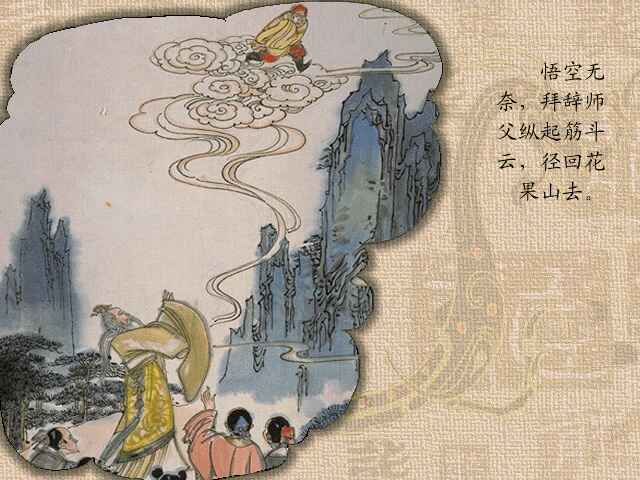 悟空无
奈，拜辞师
父纵起筋斗
云，径回花
果山去。